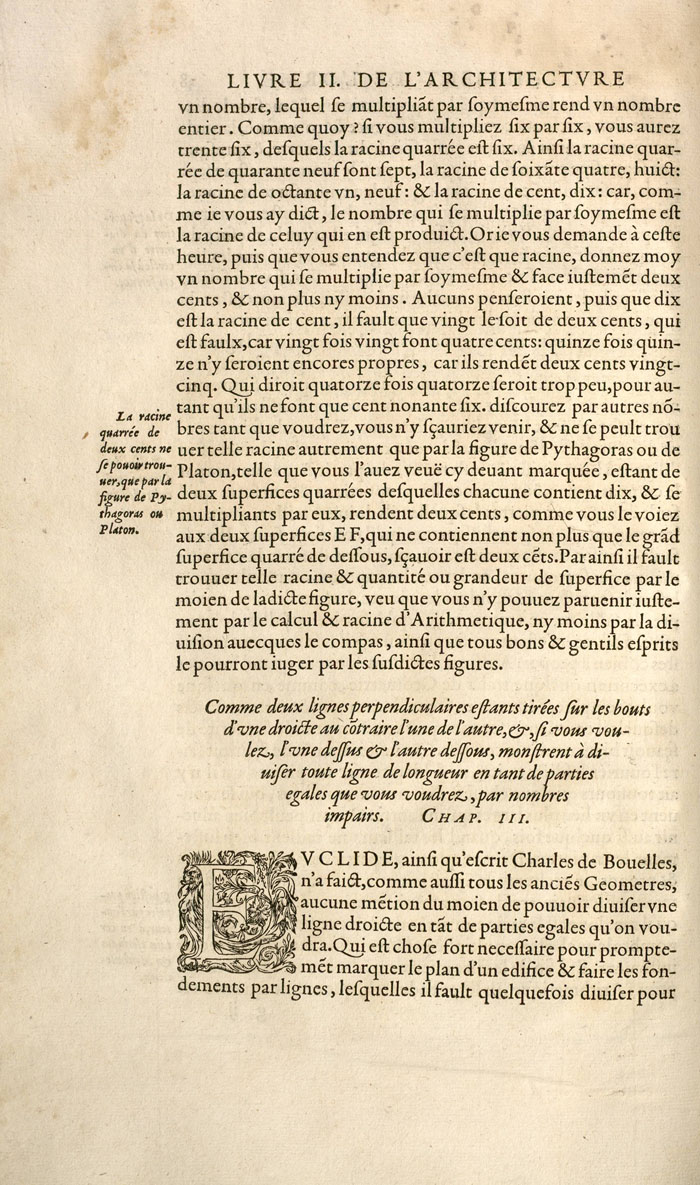 LIVRE II. DE L'ARCHITECTVRE
vn nombre, lequel se multipliãt par soymesme rend vn nombre
entier. Comme quoy? si vous multipliez six par six, vous aurez
trente six, desquels la racine quarrée est six. Ainsi la racine quar-
rée de quarante neuf sont sept, la racine de soixãte quatre, huict:
la racine de octante vn, neuf: & la racine de cent, dix: car, com-
me ie vous ay dict, le nombre qui se multiplie par soymesme est
la racine de celuy qui en est produict. Or ie vous demande à ceste
heure, puis que vous entendez que c'est que racine, donnez moy
vn nombre qui se multiplie par soymesme & face iustemẽt deux
cents, & non plus ny moins. Aucuns penseroient, puis que dix
est la racine de cent, il fault que vingt le soit de deux cents, qui
est faulx, car vingt fois vingt font quatre cents: quinze fois quin-
ze n'y seroient encores propres, car ils rendẽt deux cents vingt-
cinq. Qui diroit quatorze fois quatorze seroit trop peu, pour au-
tant qu'ils ne font que cent nonante six. discourez par autres nõ-
bres tant que voudrez, vous n'y sçauriez venir, & ne se peult trou
uer telle racine autrement que par la figure de Pythagoras ou de
Platon, telle que vous l'auez veuë cy deuant marquée, estant de
deux superfices quarrées desquelles chacune contient dix, & se
multipliants par eux, rendent deux cents, comme vous le voiez
aux deux superfices E F, qui ne contiennent non plus que le grãd
superfice quarré de dessous, sçauoir est deux cẽts. Par ainsi il fault
trouuer telle racine & quantité ou grandeur de superfice par le
moien de ladicte figure, veu que vous n'y pouuez paruenir iuste-
ment par le calcul & racine d'Arithmetique, ny moins par la di-
uision auecques le compas, ainsi que tous bons & gentils esprits
le pourront iuger par les susdictes figures.
La racine
quarrée de
deux cents ne
se pouoir trou-
uer, que par la
figure de Py-
thagoras ou
Platon.
Comme deux lignes perpendiculaires estants tirées sur les bouts
d'vne droicte au cõtraire l'une de l'autre, &, si vous vou-
lez, l'vne dessus & l'autre dessous, monstrent à di-
uiser toute ligne de longueur en tant de parties
egales que vous voudrez, par nombres
impairs. CHAP. III.
EVCLIDE, ainsi qu'escrit Charles de Bouelles,
n'a faict, comme aussi tous les anciẽs Geometres,
aucune mẽtion du moien de pouuoir diuiser vne
ligne droicte en tãt de parties egales qu'on vou-
dra. Qui est chose fort necessaire pour prompte-
mẽt marquer le plan d'un edifice & faire les fon-
dements par lignes, lesquelles il fault quelquefois diuiser pour